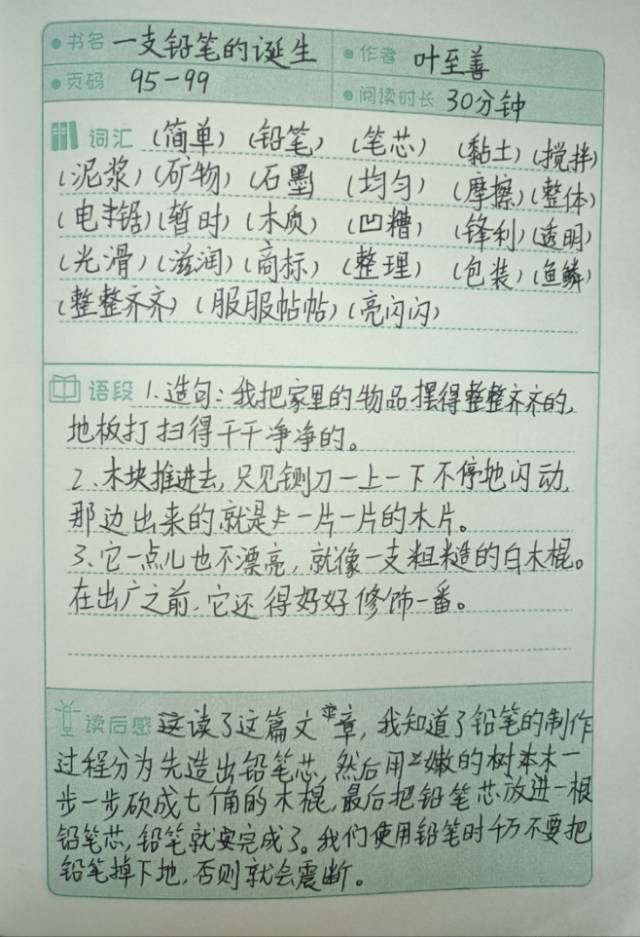 书名 一支铅笔的诞生
作者 叶至善
页码 95-99
阅读时长 30分钟
词汇 (简单) (铅笔) (笔芯) (黏土) (搅拌)
(泥浆) (矿物) (石墨) (均匀) (摩擦) (整体)
(电锯) (暂时) (木质) (凹糟) (锋利) (透明)
(光滑) (滋润) (商标) (整理) (包装) (鱼鳞)
(整整齐齐) (服服帖帖) (亮闪闪)
语段 1.造句:我把家里的物品摆得整整齐齐的,
地板打扫得干干净净的。
2、木块推进去,只见铡刀一上一下不停地闪动,
那边出来的就是一片一片的木片。
3、它一点儿也不漂亮,就像一支粗糙的白木棍。
在出厂之前,它还得好好修饰一番。
读后感 读了这篇文章,我知道了铅笔的制作
过程分为先造出铅笔芯,然后用嫩的树木一
步一步砍成七角的木棍,最后把铅笔芯放进一根
铅笔芯,铅笔就安完成了。我们使用铅笔时千万不要把
铅笔掉下地,否则就会震断。